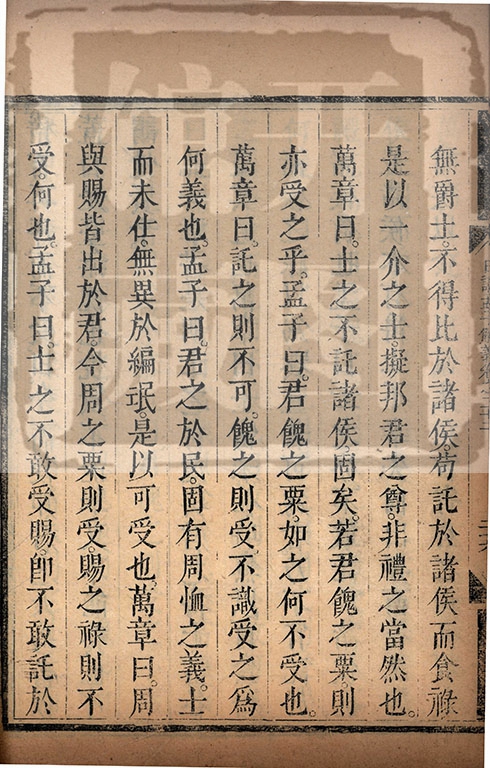 無爵士。不得比於諸侯。苟託於諸侯而食祿
是以一介之士。擬邦君之尊。非禮之當然也。
萬章曰。士之不託諸侯。固矣。若君餽之粟。則
亦受之乎。孟子曰。君餽之粟。如之何不受也。
萬章曰。託之則不可。餽之則受。不識受之為
何義也。孟子曰。君之於民。固有周恤之義。士
而未仕。無異於編氓。是以可受也。萬章曰。周
與賜皆出於君。今周之粟則受。賜之祿則不
受。何也。孟子曰。士之不敢受賜。即不敢託於